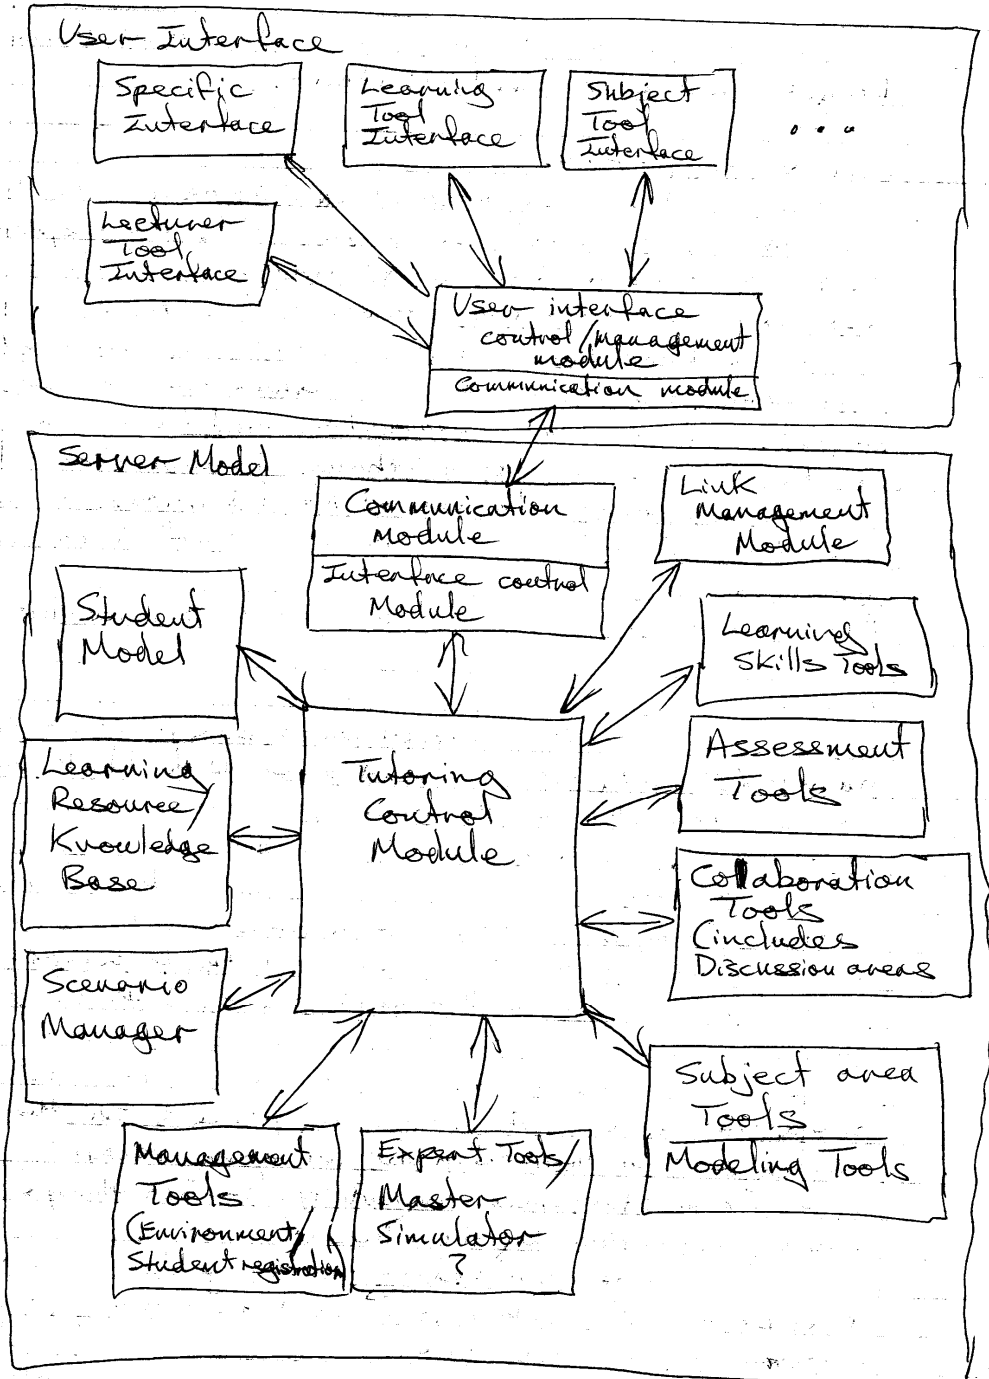 User Interface
Specific
Interface
Learning
Tool
Interface
Subject
Tool
Interface
...
Lecturer
Tool
Interface
User interface
control/management
module
Communication module
Server Model
Communication
Module
Interface control
Module
Link
Management
Module
Student
Model
Learning
Skills Tools
Learning
Resource/
Knowledge
Base
Tutoring
Control
Module
Assessment
Tools
Collaboration
Tools
(includes
Discussion areas
Scenario
Manager
Subject area
Tools
Modeling Tools
Management
Tools
(Environment/
Student registration)
Expert Tools/
Master
Simulator
?